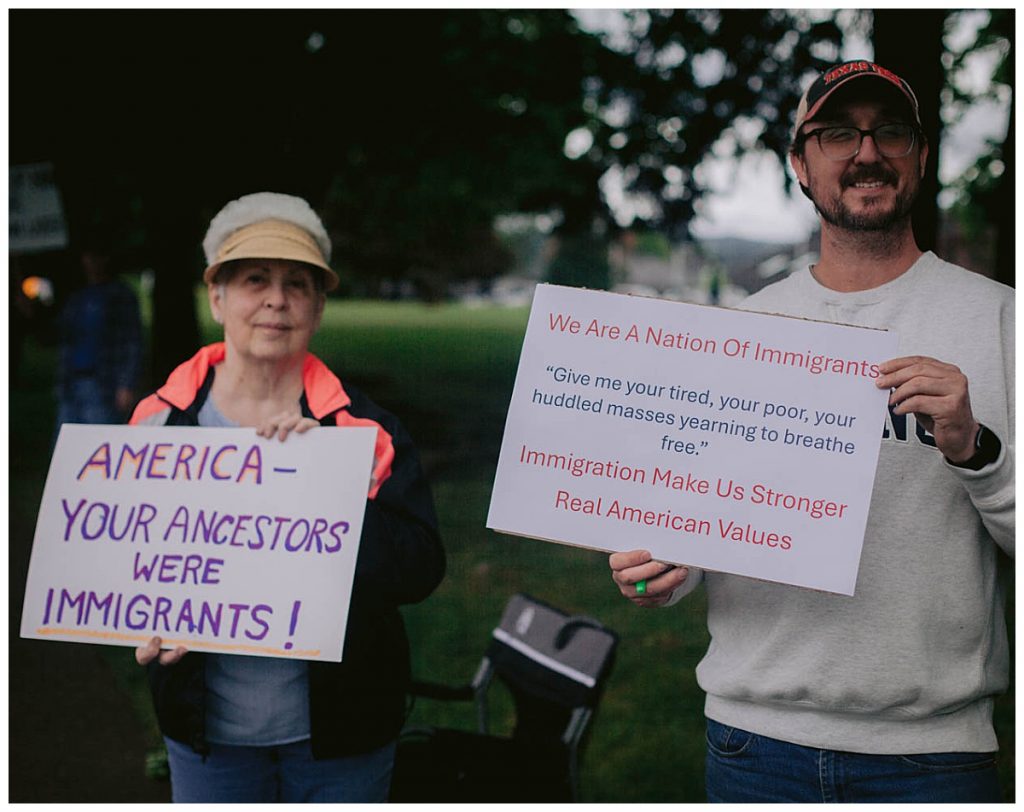 TEXAS TECH
AMERICA –
YOUR ANCESTORS
WERE
IMMIGRANTS!
We Are A Nation Of Immigrants
“Give me your tired, your poor, your
huddled masses yearning to breathe
free.”
Immigration Make Us Stronger
Real American Values